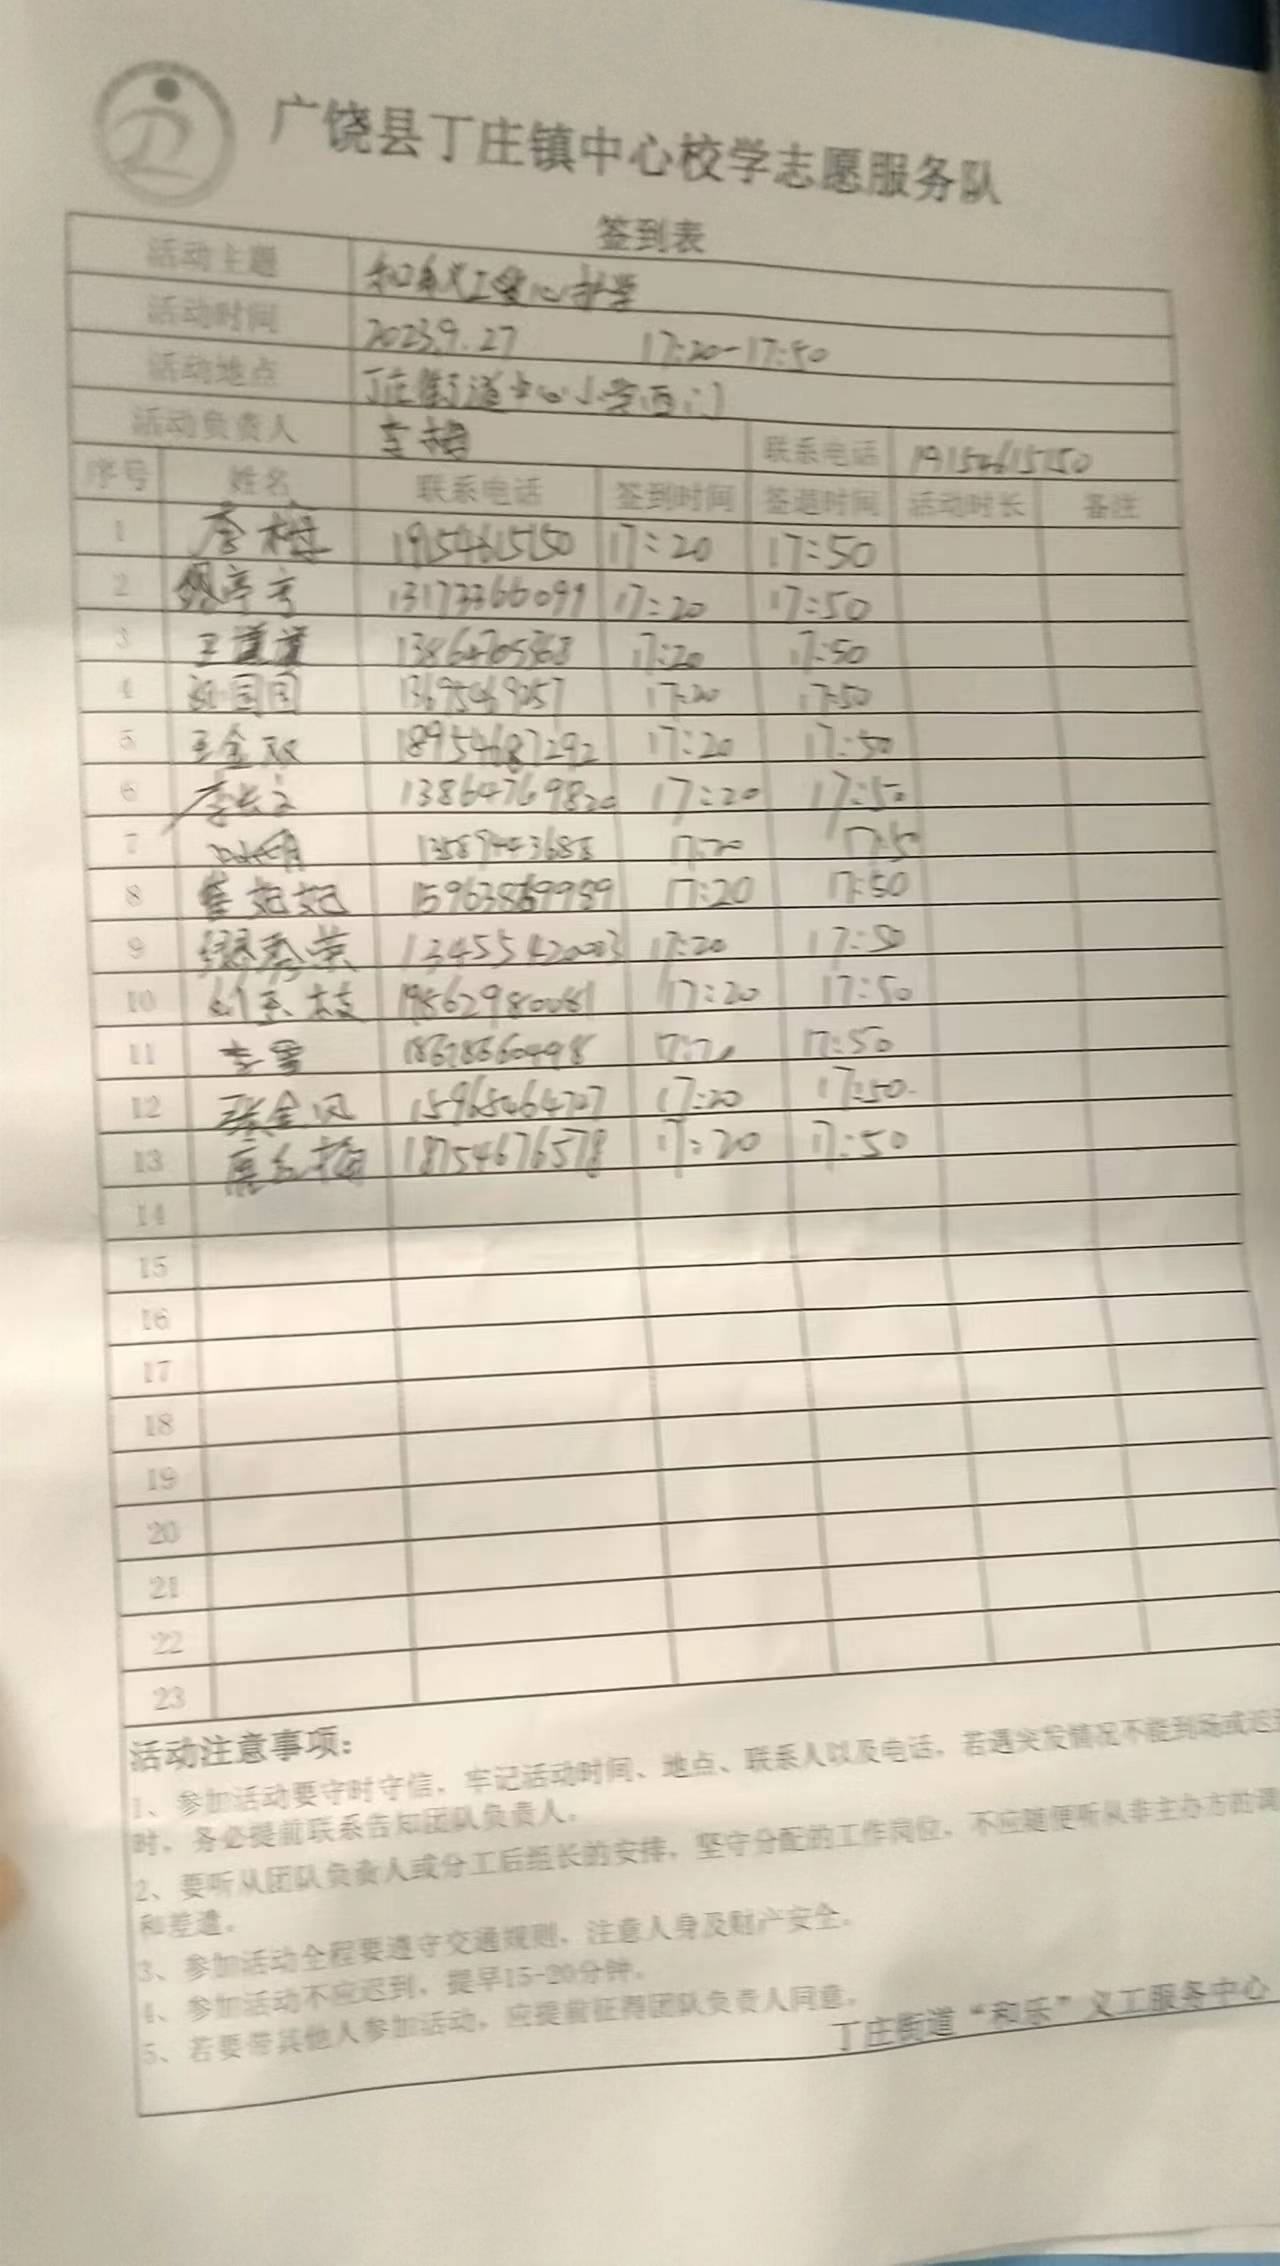 广饶县丁庄镇中心校学志愿服务队
签到表
活动主题 和乐义工爱心护学
活动时间 2023.9.27 17:20-17:50
活动地点 丁庄街道中心小学西门
活动负责人 李梅 联系电话 19154615150
序号 姓名 联系电话 签到时间 签退时间 活动时长 备注
1 李梅 19154615150 17:20 17:50
2 13173366099 17:20 17:50
3 王道道 17:20 17:50
4 17:20 17:50
5 王金双 18954687292 17:20 17:50
6 李长之 13864769820 17:20 17:50
7 17:20 17:50
8 崔妃妃 15963869989 17:20 17:50
9 缪秀荣 13455420003 17:20 17:50
10 17:20 17:50
11 李雪 17:20 17:50
12 张金凤 15965464727 17:20 17:50.
13 18754676578 17:20 17:50
14
15
16
17
18
19
20
21
22
23
活动注意事项：
1、参加活动要守时守信，牢记活动时间、地点、联系人以及电话，若遇突发情况不能到场或迟到
时，务必提前联系告知团队负责人。
2、要听从团队负责人或分工后组长的安排，坚守分配的工作岗位，不应随便听从非主办方的调
和差遣。
3、参加活动全程要遵守交通规则，注意人身及财产安全。
4、参加活动不应迟到，提早15-20分钟。
5、若要带其他人参加活动，应提前征得团队负责人同意。
丁庄街道“和乐”义工服务中心